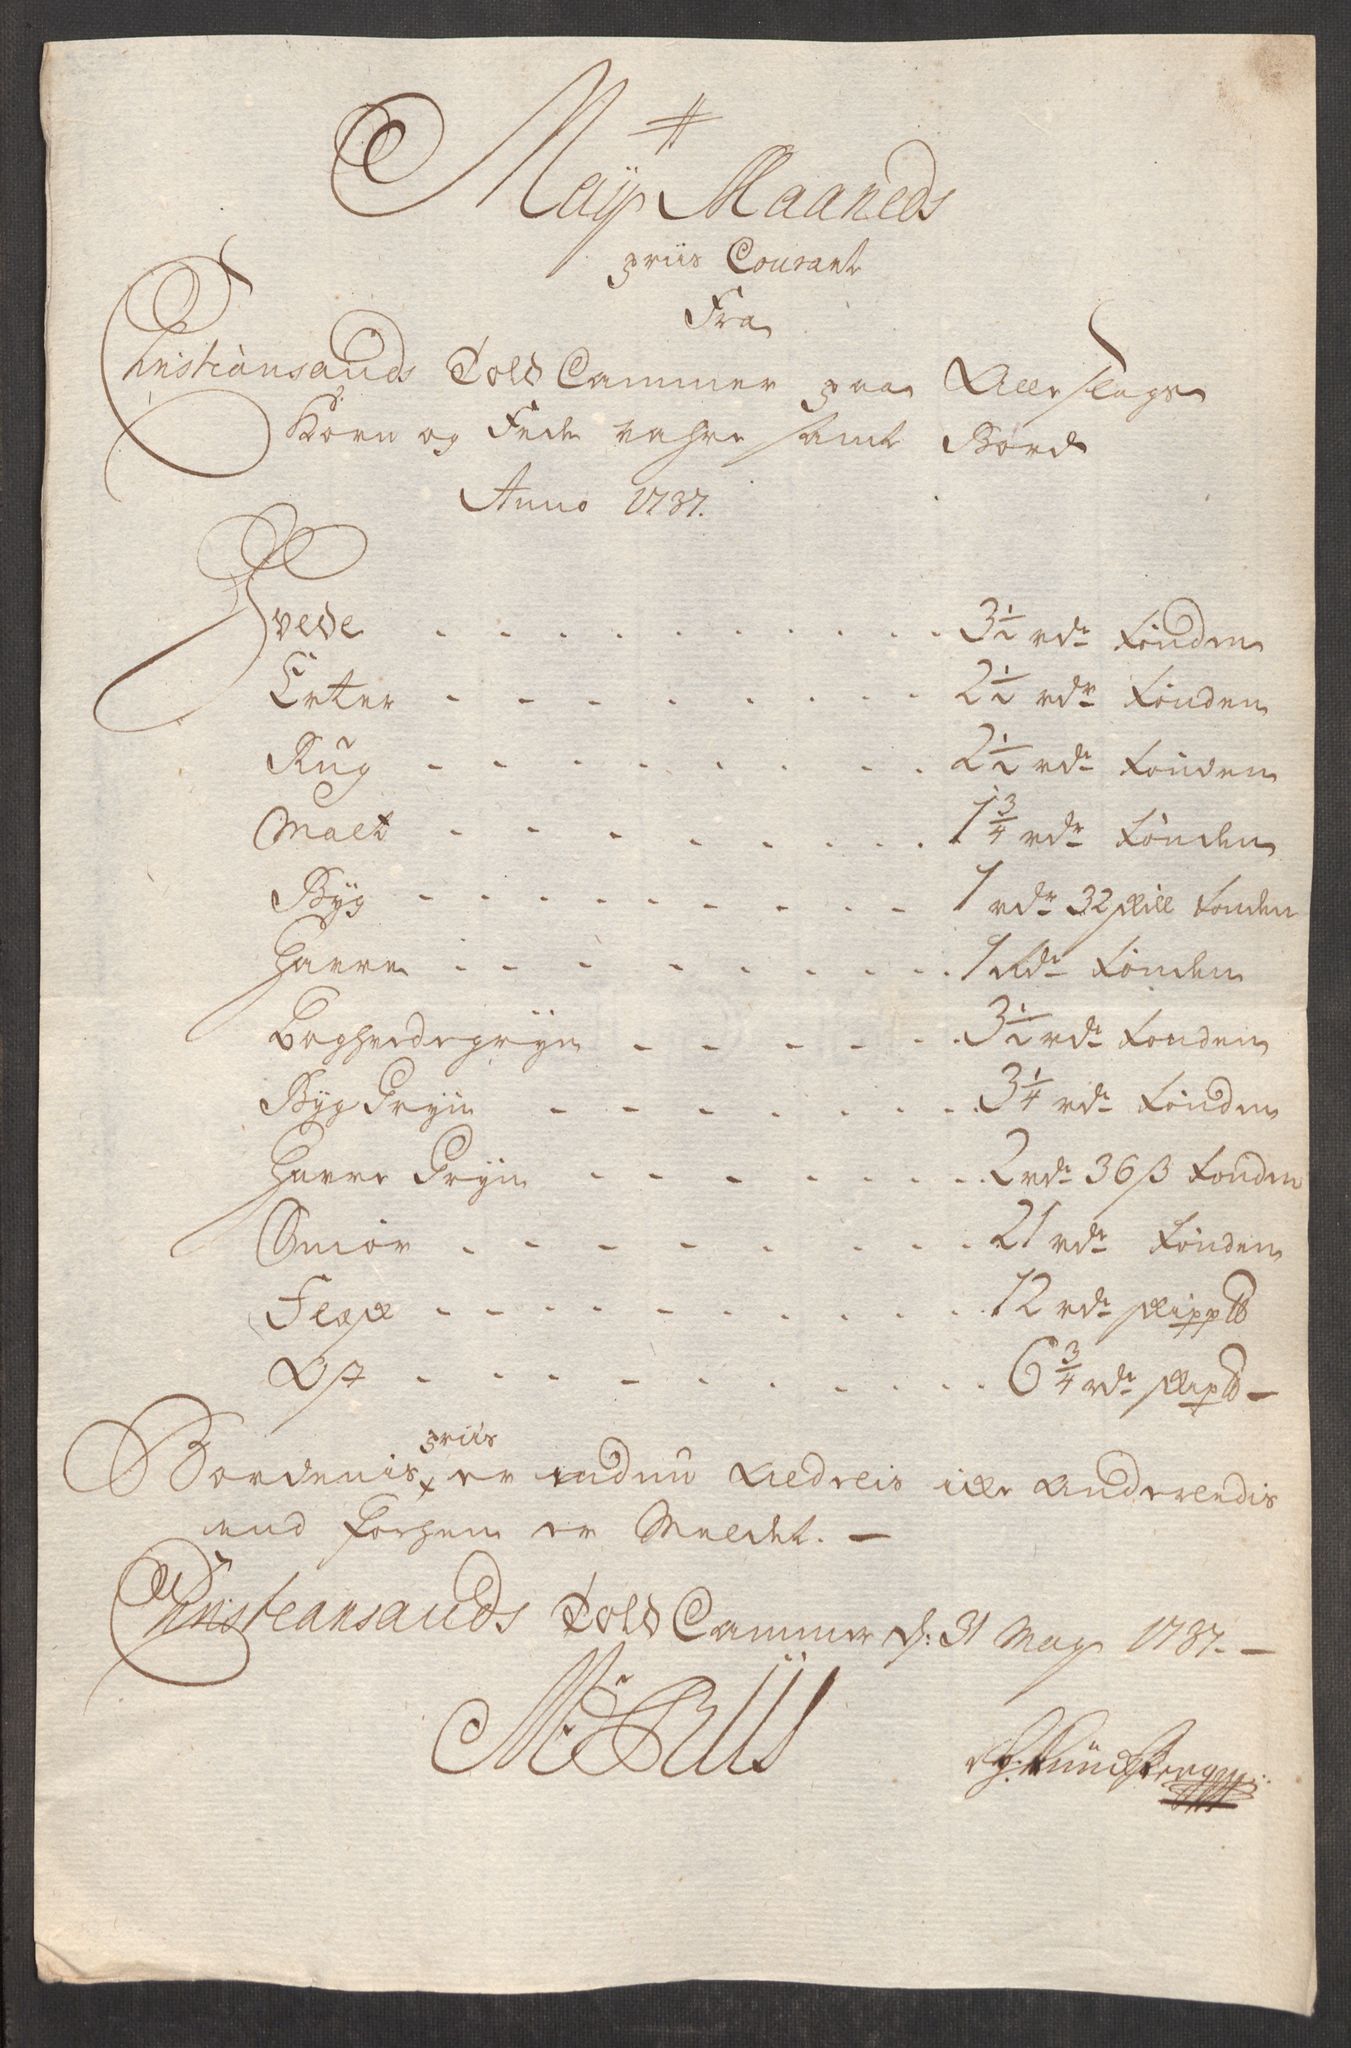 Maÿ Maaneds
priis Courant
Fra
Christiansands Told Cammer paa Alle slags
Korn og Fede vahre samt Bord
Anno 1737.
Hvede 3½ rdr Tönden
Erter 2½ rdr Tönden
Rug 2½ rdr Tönden
Malt 1¾ rdr Tönden
Byg 1 rdr 32 skill Tonden
Havre 1 rdr Tönden
Boghvedegryn 3½ rdr Tonden
Byg Gryn 3¼ rdr Tönden
Havre Gryn 2 rdr 36 ß Tonden
Smör 21 rdr Tönden
Flesk 12 rdr skipp℔
Ost 6¾ rdr skip℔
Bordenis priis er endnu Aldeeis icke Anderledis
end forhen er Meldet.
Christiansands Told Cammer d: 31 May 1737.